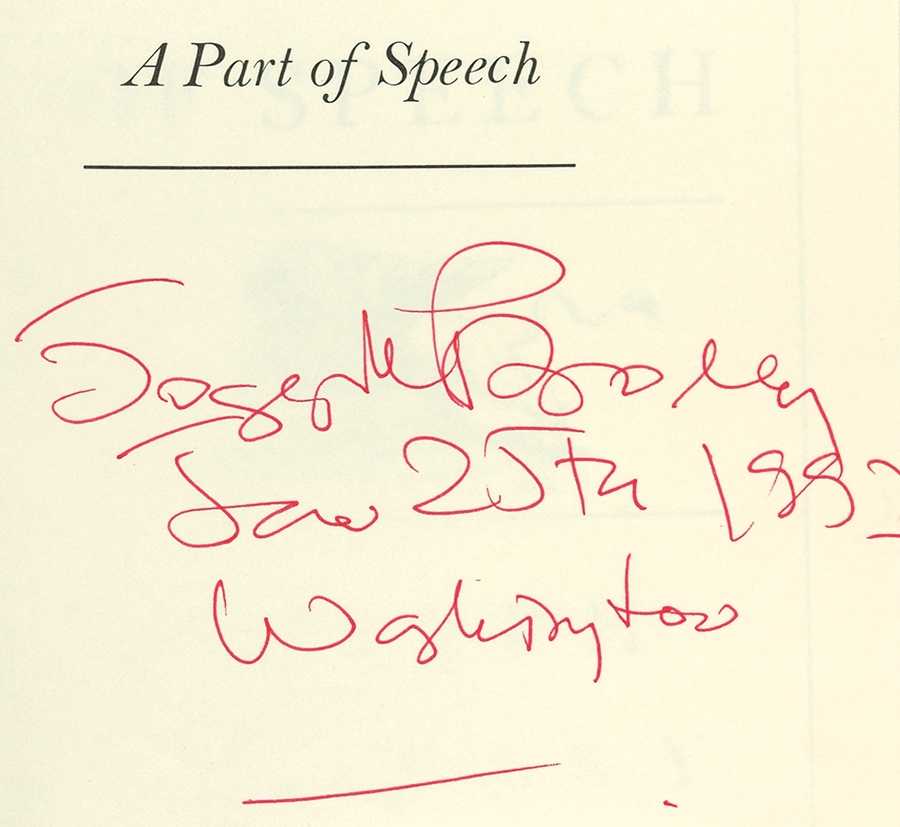 A Part of Speech
SPEECH
Joseph Brodsky
Jan 25th 1992
Washington